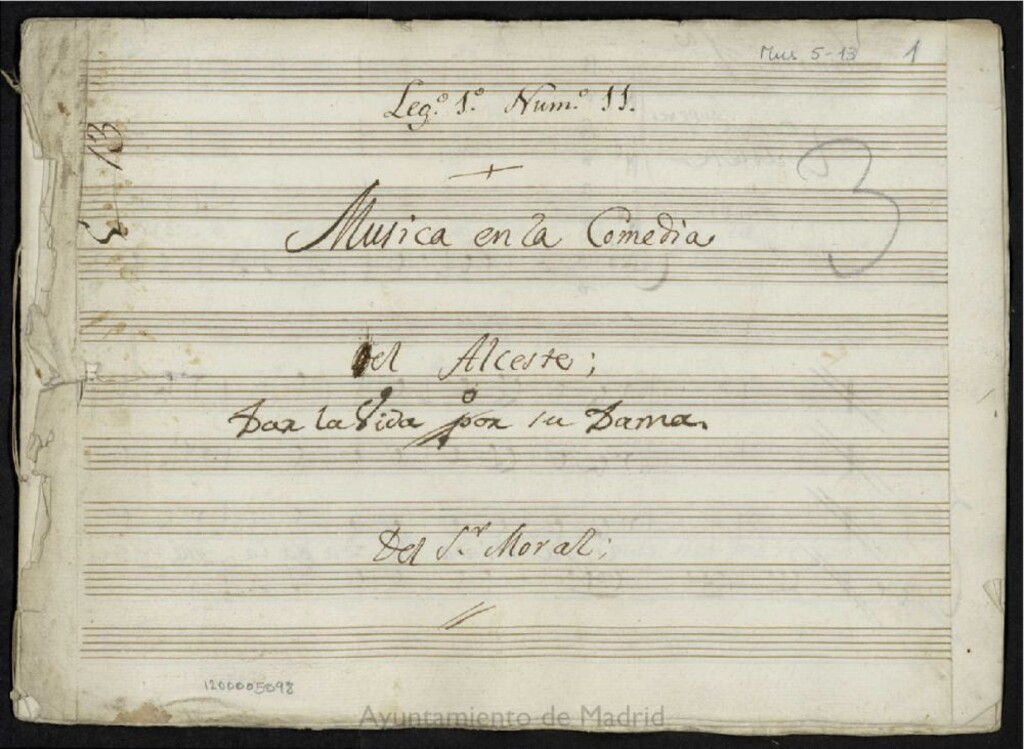 Mus 5-13 1
Leg.º 1.º Num.º 11.
13
3
Musica en la Comedia
del Alceste;
ò
Dar la Vida por su Dama.
Del S.r Moral;
1200005098
Ayuntamiento de Madrid